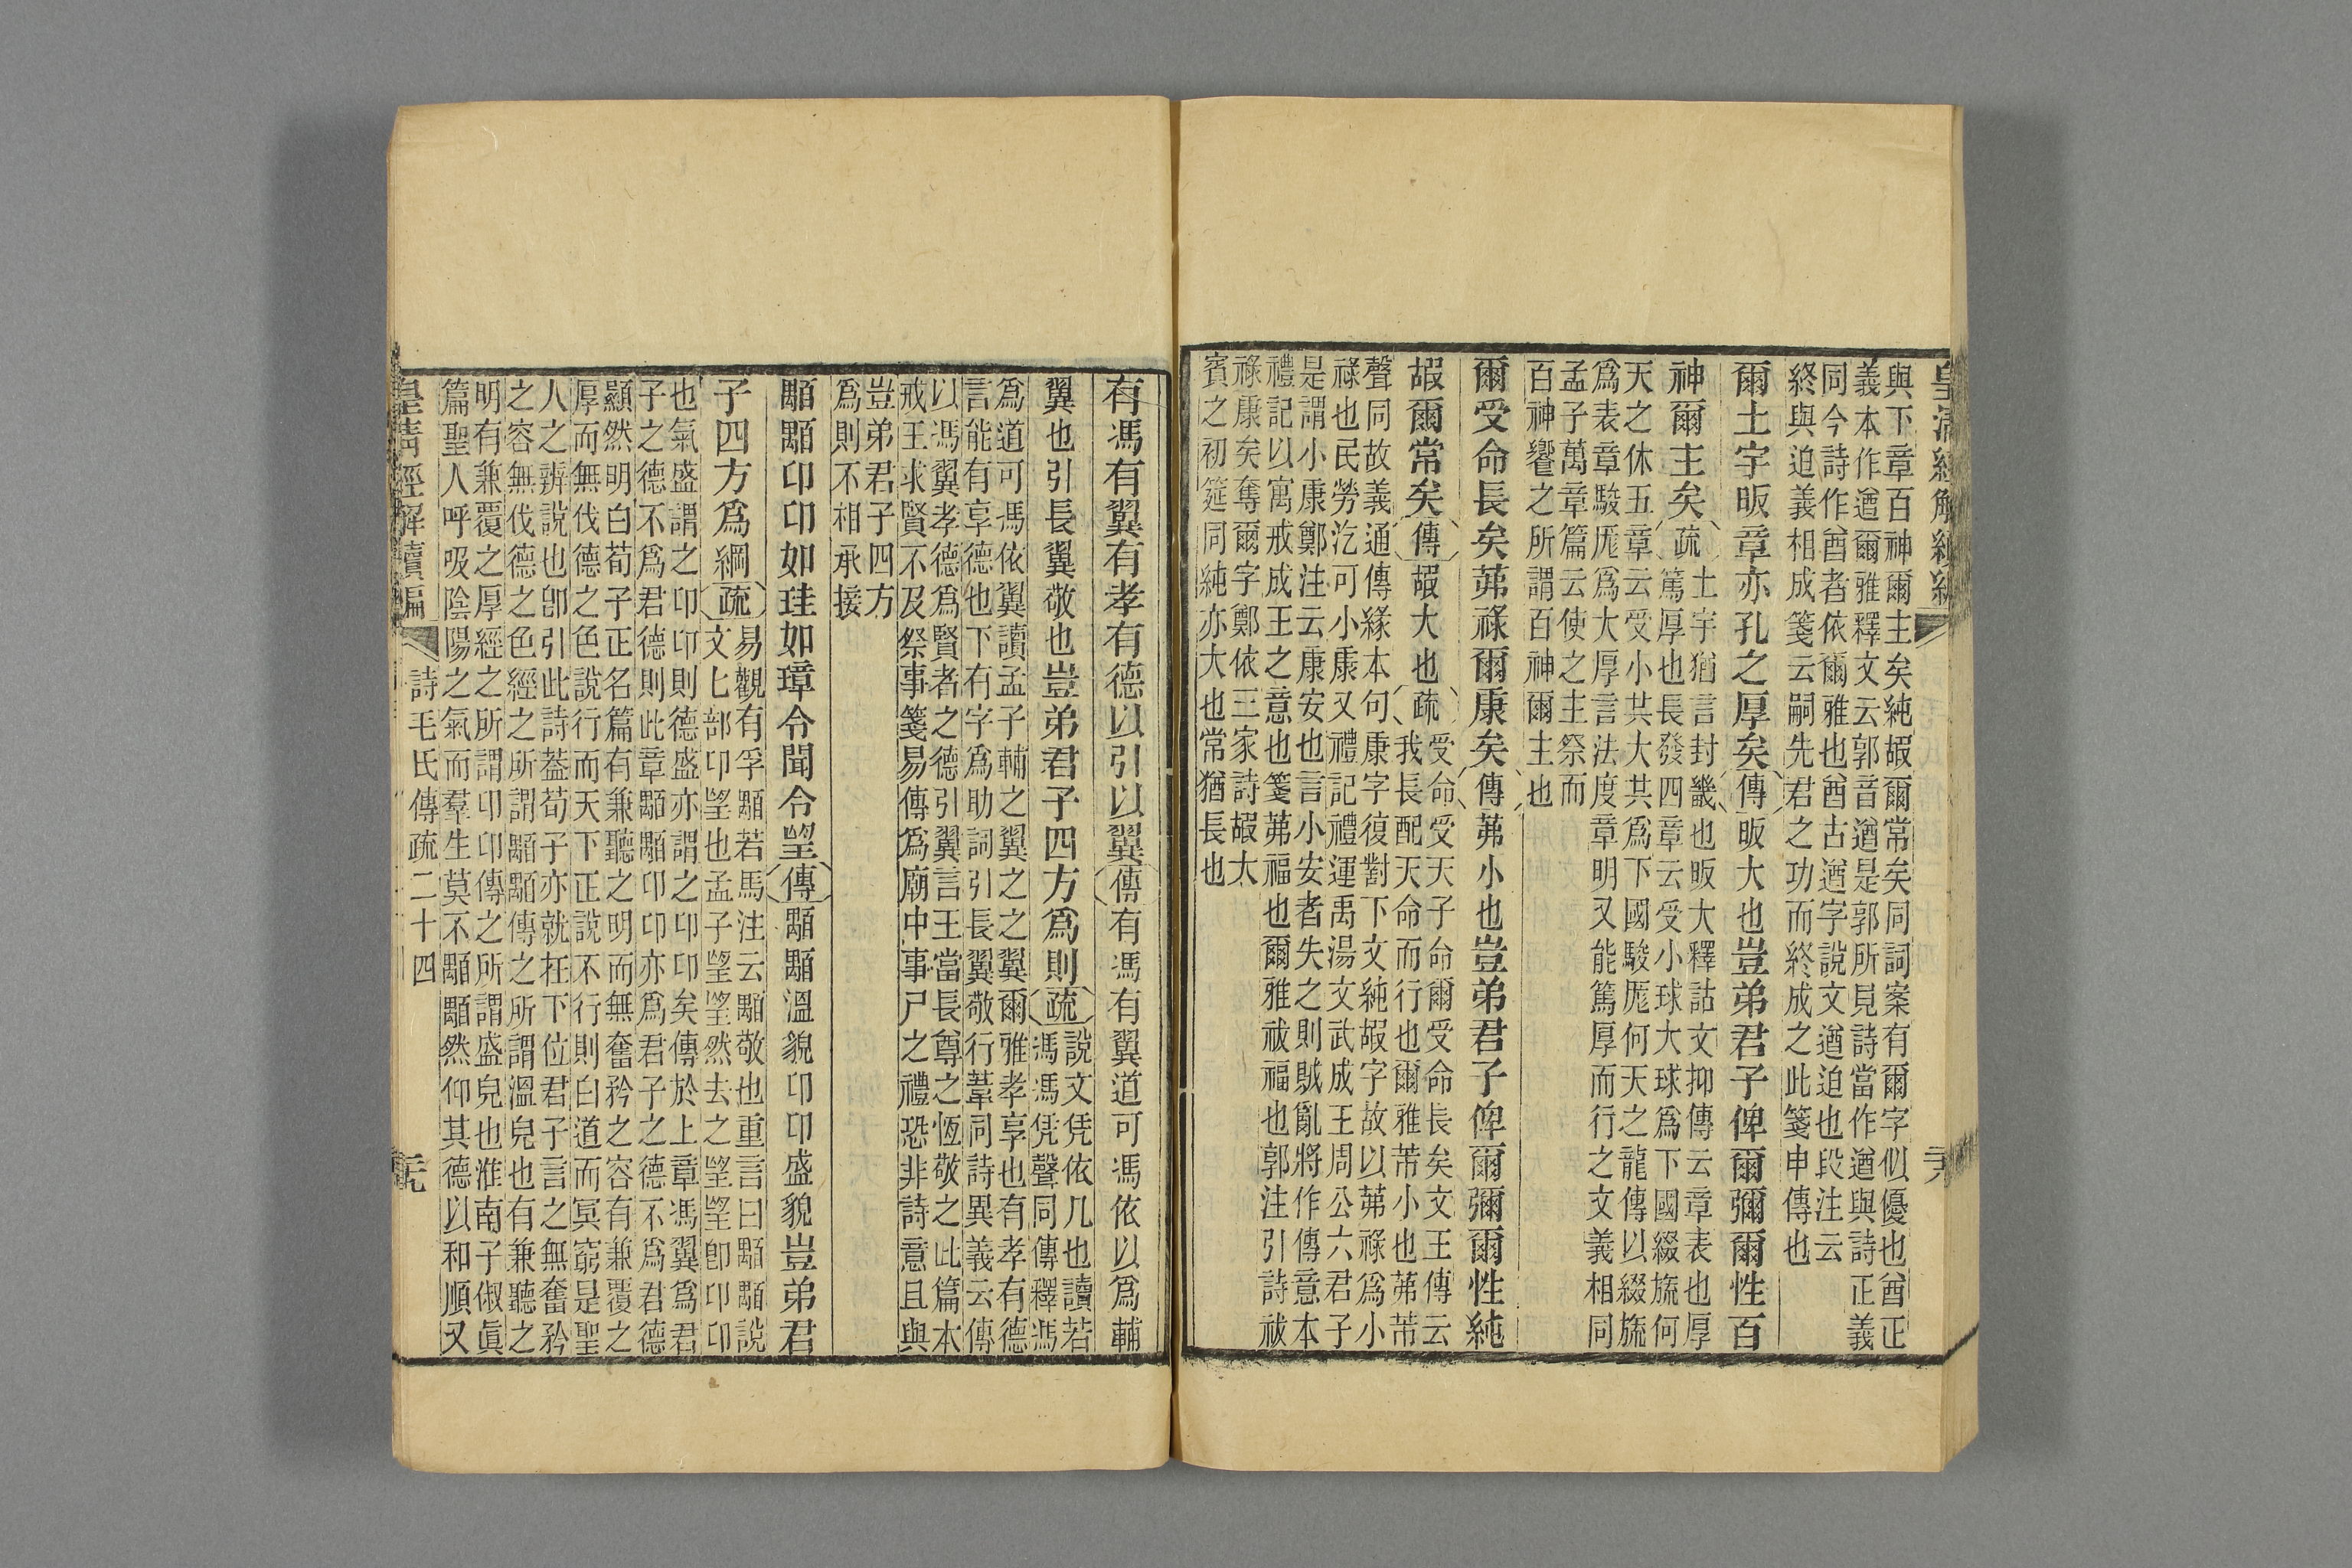 皇清經解續編
與下章百神爾主矣純嘏爾常矣同詞案有爾字似優也酋正
義本作遒爾雅釋文云郭音遒是郭所見詩當作遒與詩正義
同今詩作酋者依爾雅也酋古遒字說文遒迫也段注云
終與迫義相成箋云嗣先君之功而終成之此箋申傳也
爾土宇昄章亦孔之厚矣傳昄大也豈弟君子俾爾彌爾性百
神爾主矣疏
土宇猶言封畿也昄大釋詁文抑傳云章表也厚
篤厚也長發四章云受小球大球為下國綴旒何
天之休五章云受小共大共為下國駿厖何天之龍傳以綴旒
為表章駿厖為大厚言法度章明又能篤厚而行之文義相同
孟子萬章篇云使之主祭而
百神饗之所謂百神爾主也
爾受命長矣茀祿爾康矣傳茀小也豈弟君子俾爾彌爾性純
嘏爾常矣傳嘏大也疏
受命受天子命爾受命長矣文王傳云
我長配天命而行也爾雅芾小也茀芾
聲同故義通傳緣本句康字復對下文純嘏字故以茀祿為小
祿也民勞汔可小康又禮記禮運禹湯文武成王周公六君子
是謂小康鄭注云康安也言小安者失之則賊亂將作傳意本
禮記以寓戒成王之意也箋茀福也爾雅祓福也郭注引詩祓
祿康矣奪爾字鄭依三家詩嘏大
賓之初筵同純亦大也常猶長也
三六
有馮有翼有孝有德以引以翼傳有馮有翼道可馮依以為輔
翼也引長翼敬也豈弟君子四方為則疏
說文凭依几也讀若
馮馮凭聲同傳釋馮
為道可馮依翼讀孟子輔之翼之之翼爾雅孝享也有孝有德
言能有享德也下有字為助詞引長翼敬行葦同詩異義云傳
以馮翼孝德為賢者之德引翼言王當長尊之恆敬之此篇本
戒王求賢不及祭事箋易傳為廟中事尸之禮恐非詩意且與
豈弟君子四方
為則不相承接
顒顒卬卬如珪如璋令聞令望傳顒顒溫貌卬卬盛貌豈弟君
子四方為綱疏
易觀有孚顒若馬注云顒敬也重言曰顒顒說
文匕部卬望也孟子望望然去之望望卽卬卬
也氣盛謂之卬卬則德盛亦謂之卬卬矣傳於上章馮翼為君
子之德不為君德則此章顒顒卬卬亦為君子之德不為君德
顯然明白荀子正名篇有兼聽之明而無奮矜之容有兼覆之
厚而無伐德之色說行而天下正說不行則白道而冥窮是聖
人之辨說也卽引此詩葢荀子亦就在下位君子言之無奮矜
之容無伐德之色經之所謂顒顒傳之所謂溫皃也有兼聽之
明有兼覆之厚經之所謂卬卬傳之所謂盛皃也淮南子俶眞
篇聖人呼吸陰陽之氣而羣生莫不顒顒然仰其德以和順又
皇清經解續編
詩毛氏傳疏二十四